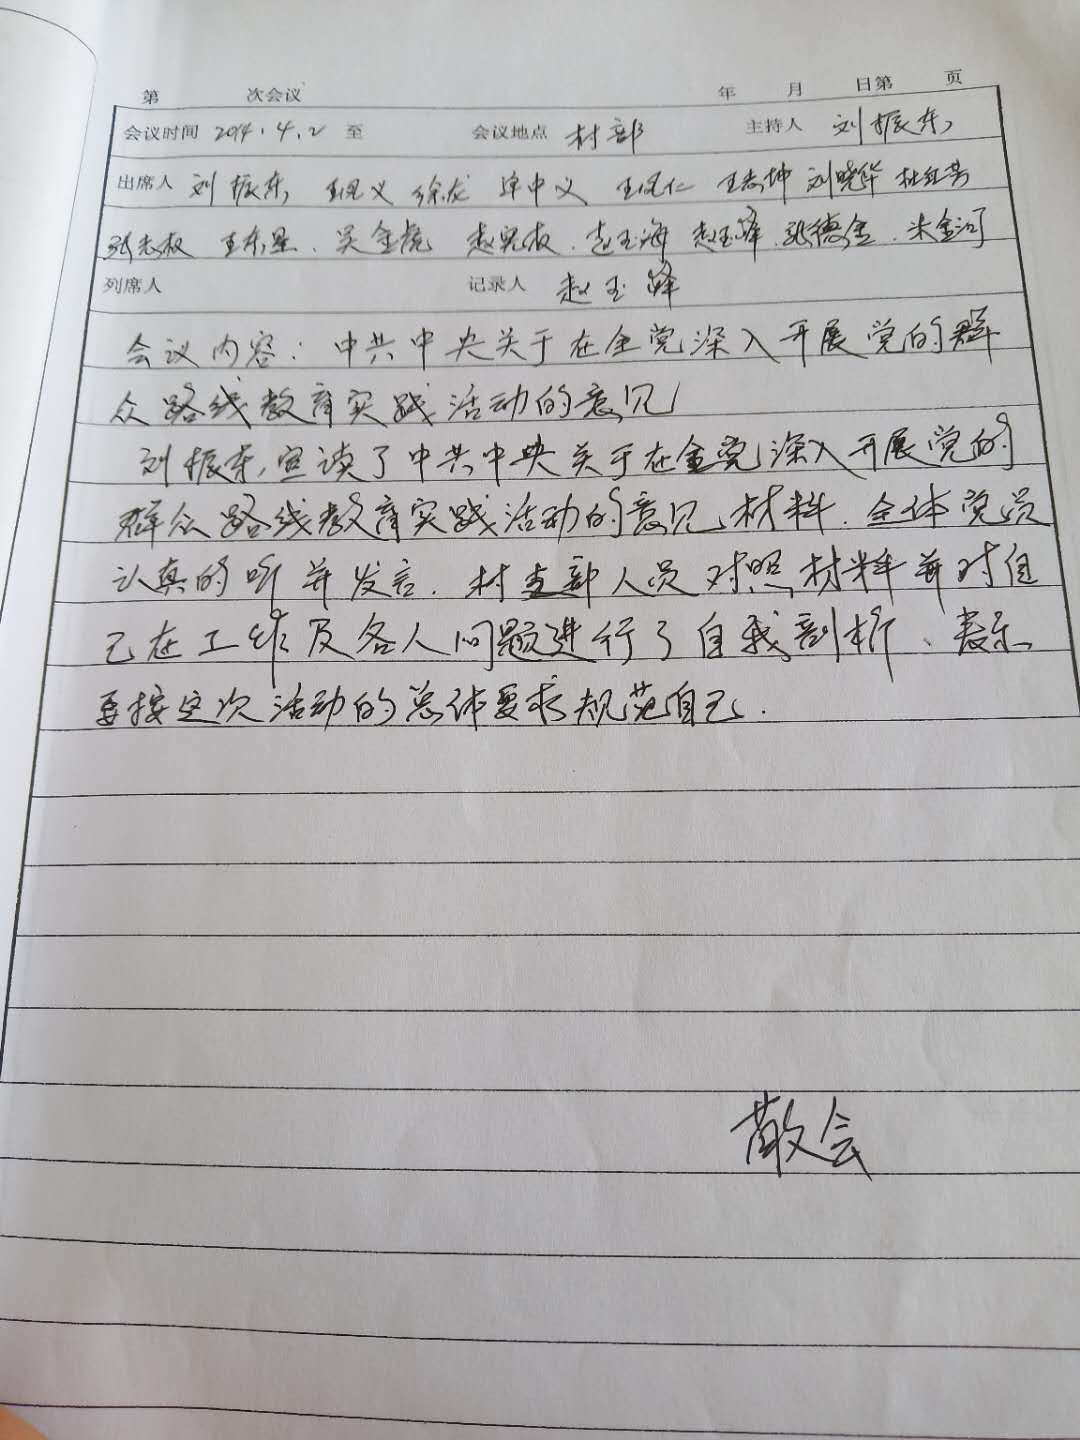 第 次会议 年 月 日第 页
会议时间 2014.4.2 至 会议地点 村部 主持人 刘振东
出席人 刘振东 王民义 徐龙 中义 王民仁 王志坤 刘晓华 杜红芳
张志权 王东 . 吴金 赵 权 . 赵玉海 赵玉峰 . 张德金 . 米金河
列席人 记录人 赵玉峰
会议内容：中共中央关于在全党深入开展党的群
众路线教育实践活动的意见
刘振东，宣读了中共中央关于在全党深入开展党的
群众路线教育实践活动的意见材料．全体党员
认真的听并发言．村支部人员对照材料并对自
己在工作及各人问题进行了自我剖析、表示
要按这次活动的总体要求规范自己．
散会